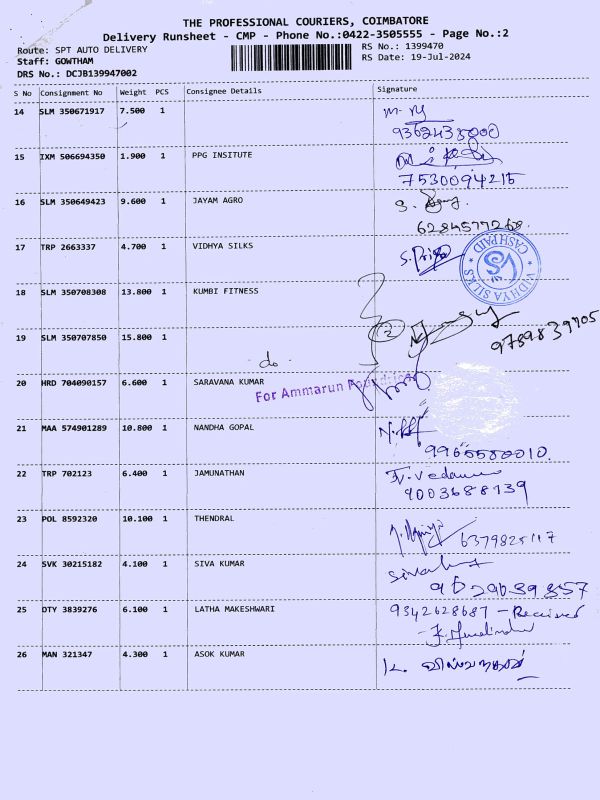 THE PROFESSIONAL COURIERS, COIMBATORE
Delivery Runsheet - CMP - Phone No.:0422-3505555 - Page No.:2
Route: SPT AUTO DELIVERY
RS No.: 1399470
Staff: GOWTHAM
RS Date: 19-Jul-2024
DRS No.: DCJB139947002
S No Consignment No Weight PCS Consignee Details Signature
14 SLM 350671917 7.500 1
9362438000
15 IXM 506694350 1.900 1 PPG INSITUTE
7530094215
16 SLM 350649423 9.600 1 JAYAM AGRO
6284577268
17 TRP 2663337 4.700 1 VIDHYA SILKS S. Priya
VIDHYA SILKS CASH PAID
18 SLM 350708308 13.800 1 KUMBI FITNESS
2
9789839705
19 SLM 350707850 15.800 1
- do -
20 HRD 704090157 6.600 1 SARAVANA KUMAR
For Ammarun
21 MAA 574901289 10.800 1 NANDHA GOPAL
9965580010.
22 TRP 702123 6.400 1 JAMUNATHAN
9003688139
23 POL 8592320 10.100 1 THENDRAL
6379825117
24 SVK 30215182 4.100 1 SIVA KUMAR
9629639357
25 OTY 3839276 6.100 1 LATHA MAKESHWARI 9342628687 - Received
26 MAN 321347 4.300 1 ASOK KUMAR